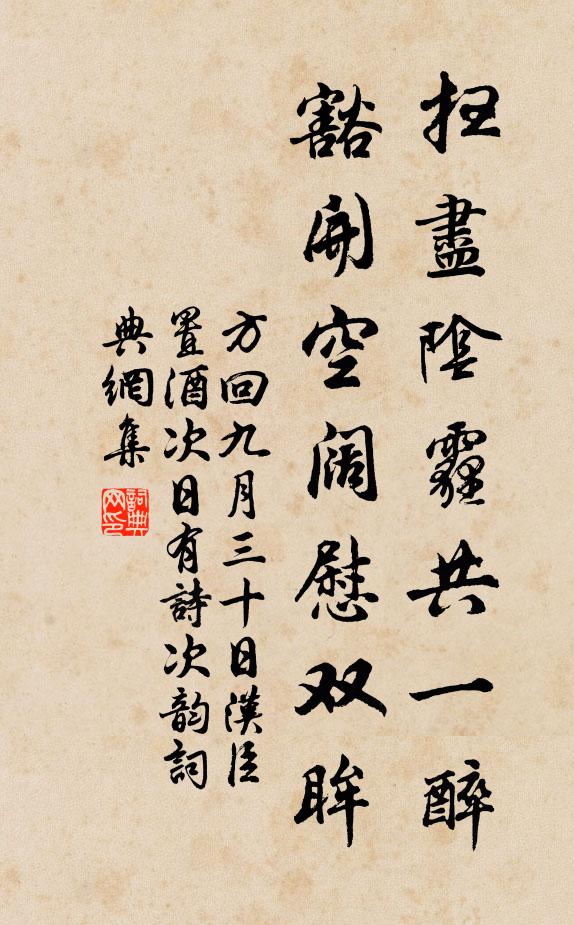 扫盡陰霾共一醉
豁開空阔慰双眸
方回九月三十日漢臣
置酒次日有詩次韵詞
典網集
詞典
网印